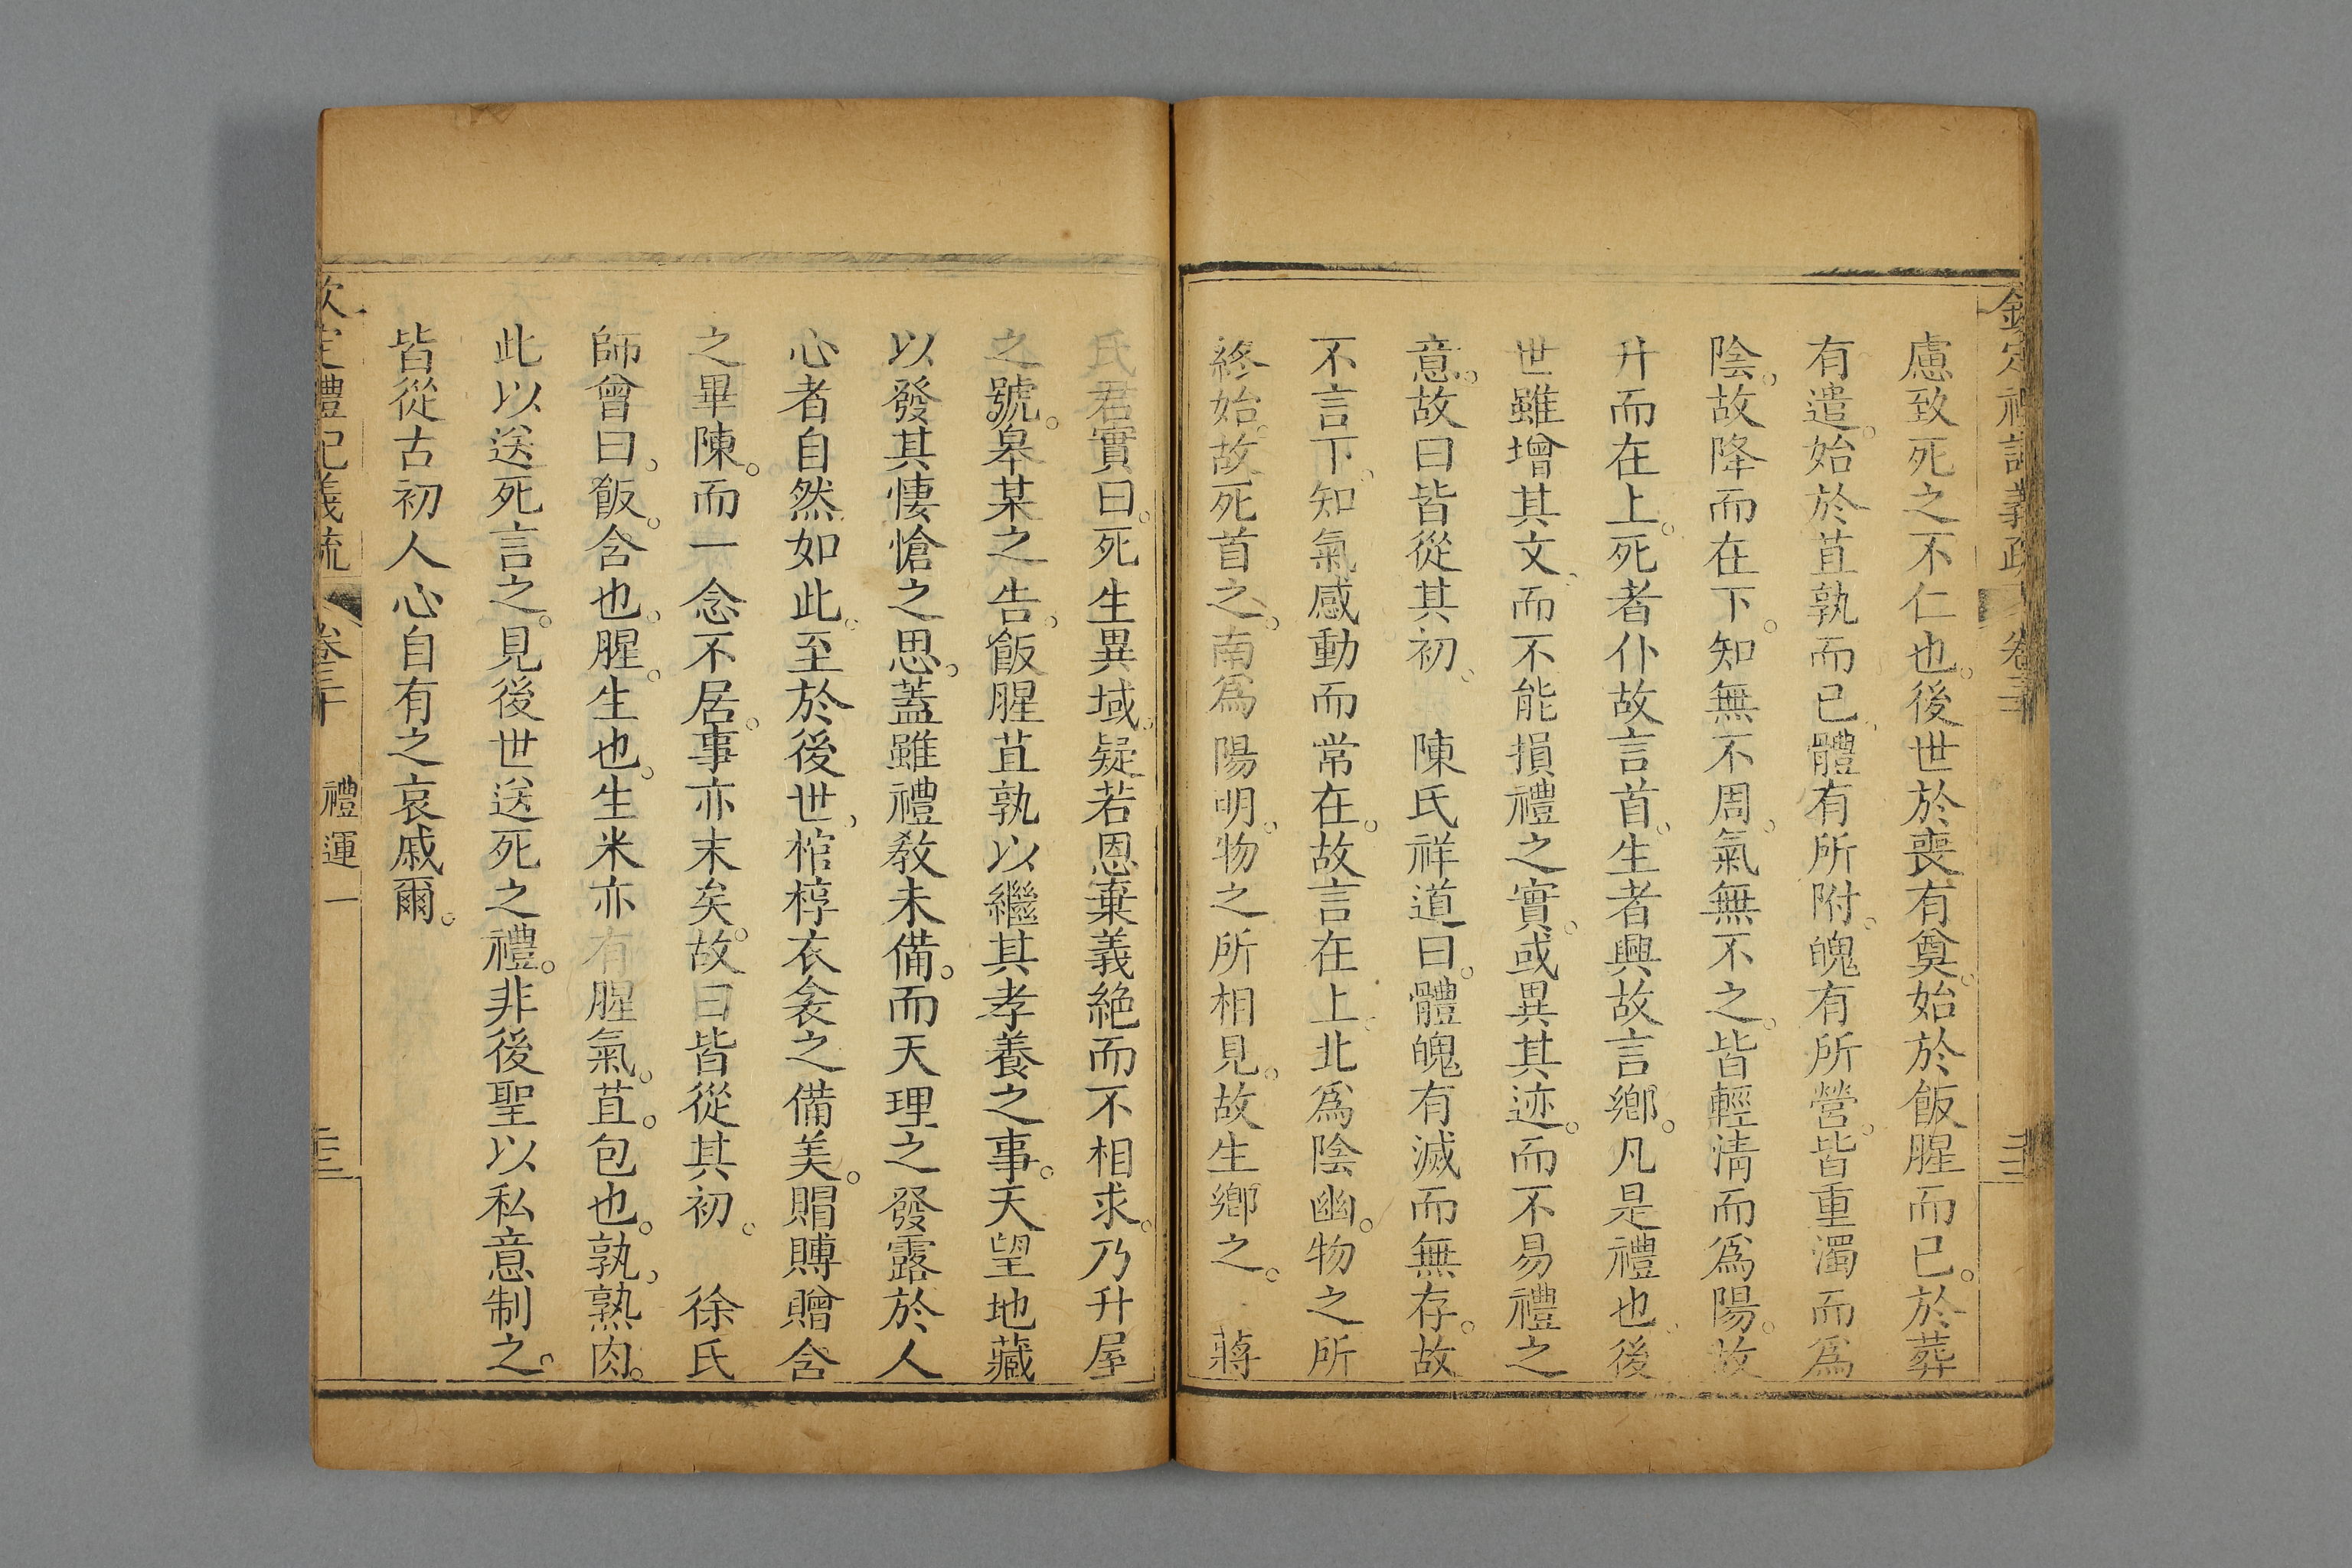 慮致死之不仁也。後世於喪有奠。始於飯腥而已。於葬
有遣。始於苴孰而已、體有所附。魄有所營。皆重濁而爲
陰。故降而在下。知無不周。氣無不之。皆輕清而爲陽。故
升而在上。死者仆故言首。生者興故言鄉。凡是禮也、後
世雖增其文、而不能損禮之實。或異其迹。而不易禮之
意。故曰皆從其初、 陳氏祥道曰。體魄有滅而無存。故
不言下、知氣感動而常在。故言在上、北爲陰幽。物之所
終始。故死首之。南爲陽明。物之所相見。故生鄉之。 蔣
氏君實曰。死生異域。疑若恩棄義絶而不相求。乃升屋
之號。皋某之告。飯腥苴孰以繼其孝養之事。天望地藏
以發其悽愴之思、蓋雖禮教未備。而天理之發露於人
心者自然如此。至於後世、棺椁衣衾之備美。賵賻贈含
之畢陳。而一念不居。事亦末矣。故曰皆從其初。 徐氏
師曾曰、飯。含也。腥。生也。生米亦有腥氣。苴。包也。孰、熟肉。
此以送死言之。見後世送死之禮。非後聖以私意制之。
皆從古初人心自有之哀戚爾。
欽定禮記義疏 卷三十 禮運一